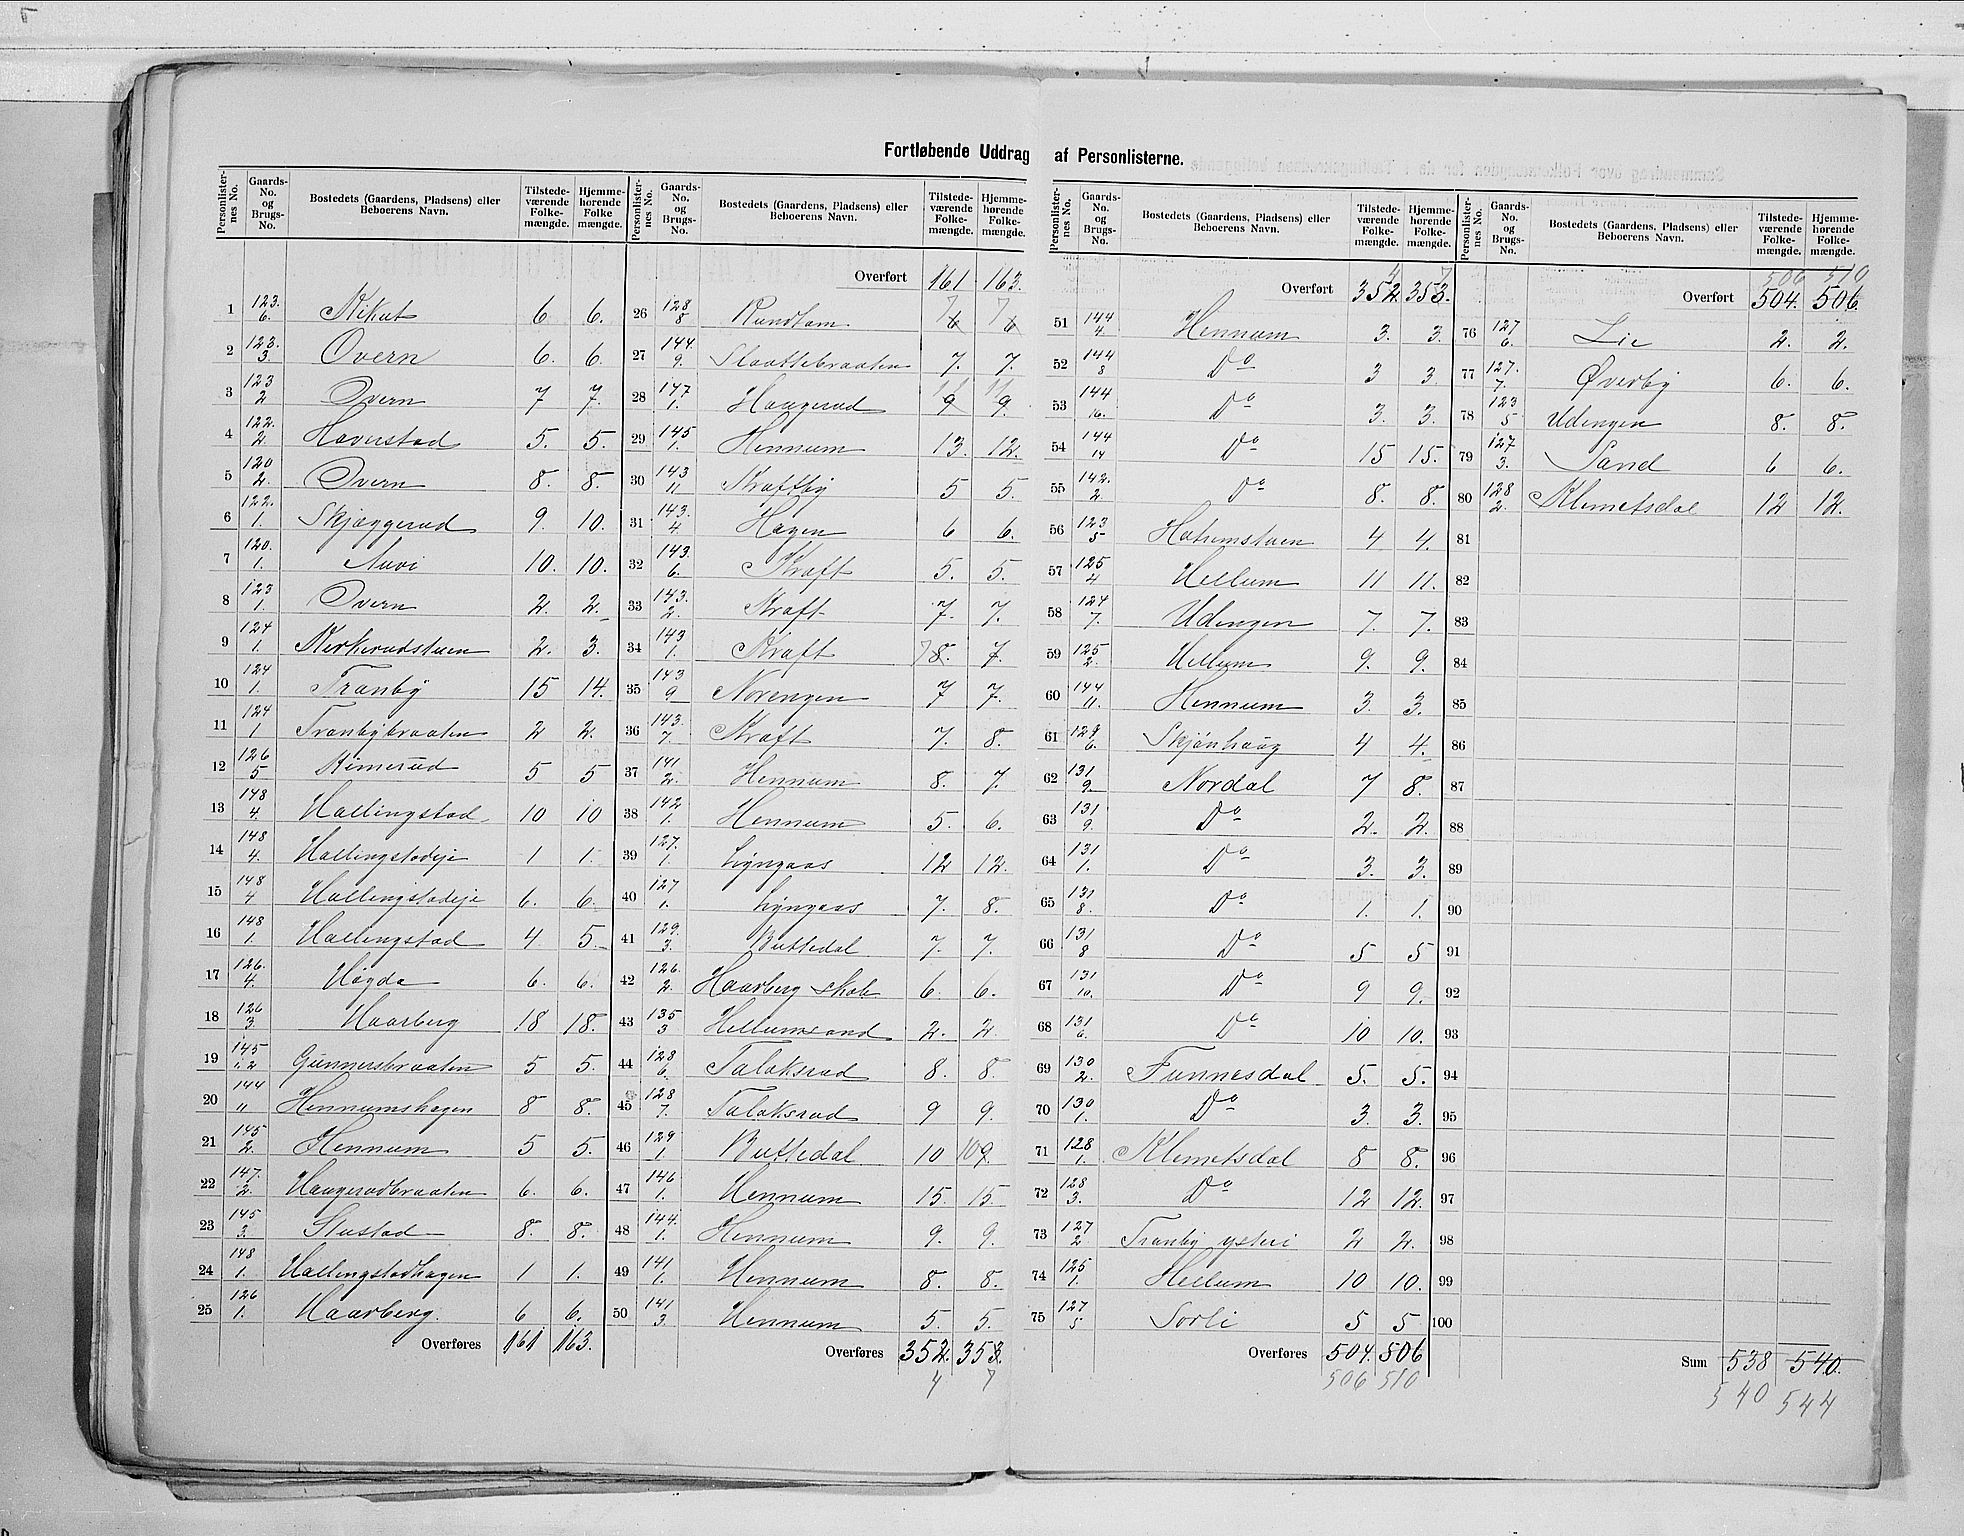 Fortløbende Uddrag af Personlisterne.
Personlister-nes No. | Gaards-No. og Brugs-No. | Bostedets (Gaardens, Pladsens) eller Beboerens Navn. | Tilstede-værende Folke-mængde. | Hjemme-hørende Folke mængde.
1 123./6. Rikut 6 6.
2 123./3. Overn 6. 6.
3 123/2 Overn 7 7.
4 122./2. Haverstad 5. 5.
5 120/2. Overn 8. 8.
6 122./1. Skjæggerud 9. 10.
7 120./1. Auvi 10. 10.
8 123/1. Overn 2. 2.
9 124/1. Kirkerudstuen 2. 3.
10 124/1. Tranby 15 14.
11 124/1 Tranbybraaten 2 2.
12 126/5 Rimerud 5 5
13 148/4. Hallingstad 10 10
14 148/4. Hallingstadeje 1 1.
15 148/4 Hallingstadeje 6. 6.
16 148/1. Hallingstad 4 5.
17 126./4. Høgda 6. 6.
18 126/3. Haarberg 18 18.
19 145/1.2 Gunnersbraaten 5 5.
20 144/" Hennumshagen 8 8.
21 145/2. Hennum 5 5.
22 147./2. Haugerudbraaten 6. 6.
23 145/3. Stustad 8. 8.
24 148/1. Hallingstadhagen 1 1.
25 126/1. Haarberg. 6 6.
Overføres 161 163.
Personlister-nes No. | Gaards-No. og Brugs-No. | Bostedets (Gaardens, Pladsens) eller Beboerens Navn. | Tilstede-værende Folke-mængde. | Hjemme-hørende Folke-mængde.
Overført 161 163.
26 128/8 Rundtom 7 6 7 6
27 144./9. Slaattebraaten 7. 7.
28 147/1. Haugerud 11 9 11 9.
29 145/1. Hennum 13. 12.
30 143/11 Kraftby 5 5.
31 143./4. Hagen 6 6.
32 143./6. Kraft 5. 5.
33 143./2. Kraft 7. 7.
34 143/1. Kraft 7 8. 7.
35 143/9 Norengen 7 7.
36 143./7. Kraft 7. 8.
37 141/2. Hennum 8. 7.
38 142./1. Hennum 5. 6.
39 127./1. Lyngaas 12 12.
40 127/1. Lyngaas 7. 8.
41 129./3. Buttedal 7. 7.
42 126./2. Haarberg skole 6. 6.
43 135/3 Hellumsand 2. 2.
44 128/6. Talaksrud 8. 8.
45 128/7. Talaksrud 9 9.
46 129/1 Buttedal 10 10 9.
47 146/1. Hennum 15. 15.
48 144./1. Hennum 9. 9.
49 141/1. Hennum 8. 8.
50 141/3. Hennum 5. 5.
Overføres 352. 353.
4 7
Personlister-nes No. | Gaards-No. og Brugs-No. | Bostedets (Gaardens, Pladsens) eller Beboerens Navn. | Tilstede-værende Folke-mængde. | Hjemme-hørende Folke-mængde.
4 7
Overført 352. 353.
51 144/4. Hennum 3. 3.
52 144/8 Do 3 3
53 144/16. Do 3. 3.
54 144/14 Do 15 15.
55 142./2. Do 8. 8.
56 123/5 Hatumstuen 4 4.
57 125/4 Hellum 11 11.
58 124/7. Udengen 7. 7.
59 125/2. Hellum 9. 9.
60 144/11. Hennum 3. 3.
61 129/6. Skjønhaug 4 4.
62 131/9. Nordal 7 8.
63 131/9. Do 2. 2.
64 131/1. Do 3. 3.
65 131/8. Do 1. 1.
66 131/8 Do 5 5
67 131/10. Do 9 9.
68 131/6. Do 10 10.
69 130/2. Funnesdal 5. 5.
70 130/1. Do 3. 3.
71 128/1. Klemetsdal 8 8.
72 128/3. Do 12 12.
73 127/2 Tranby ysteri 2 2.
74 125/1. Hellum 10 10.
75 127/5 Sorli 5 5
Overføres 504. 506
506 510
Personlister-nes No. | Gaards-No. og Brugs-No. | Bostedets (Gaardens, Pladsens) eller Beboerens Navn. | Tilstede-værende Folke-mængde. | Hjemme-hørende Folke-mængde.
506 510
Overført 504. 506.
76 127/6. Lie 2. 2.
77 127./7. Øverby 6. 6.
78 123/5 Udengen 8. 8.
79 127/3. Sand 6 6.
80 128/2. Klemetsdal 12 12.
81
82
83
84
85
86
87
88
89
90
91
92
93
94
95
96
97
98
99
100
Sum 538 540.
540 544